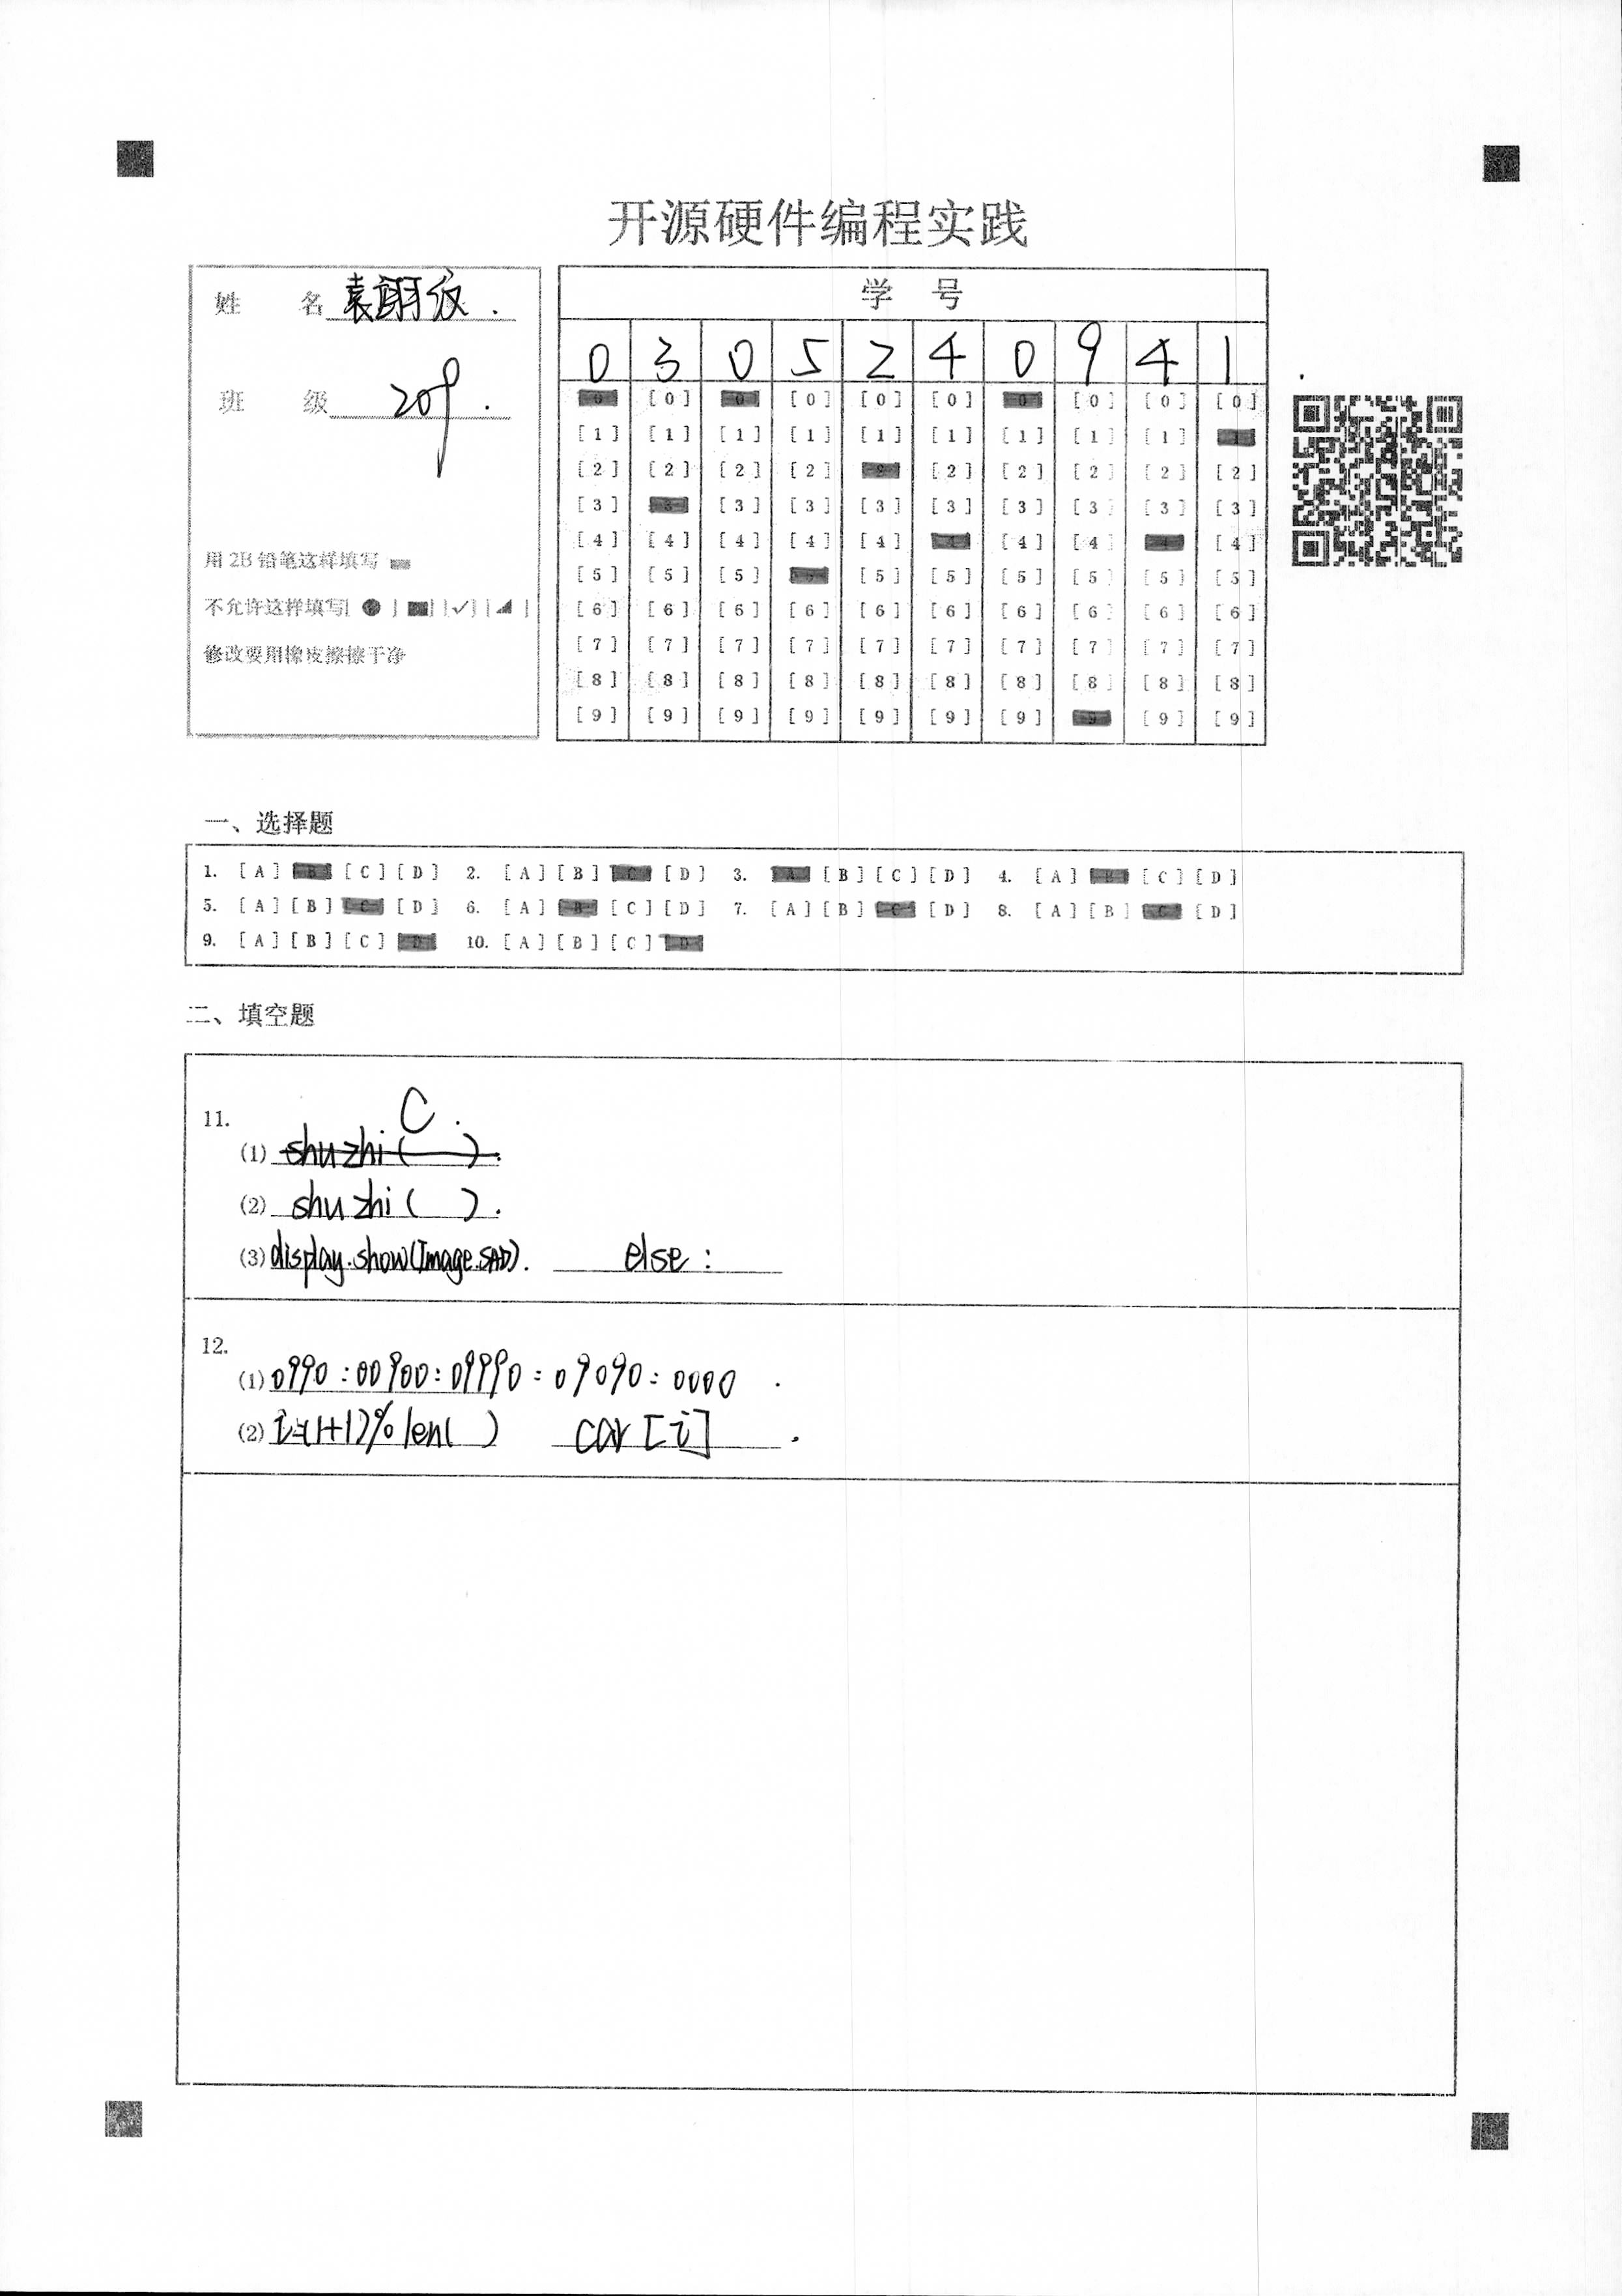 开源硬件编程实践
姓 名 袁翮
班 级 209 .
用2B铅笔这样填写
不允许这样填写[ ● ] [■] [✓] [◢ ]
修改要用橡皮擦擦干净
学 号
0 3 0 5 2 4 0 9 4 1
[0] [0] [0] [0] [0] [0] [0] [0] [0] [0]
[1] [1] [1] [1] [1] [1] [1] [1] [1] [1]
[2] [2] [2] [2] [2] [2] [2] [2] [2] [2]
[3] [3] [3] [3] [3] [3] [3] [3] [3] [3]
[4] [4] [4] [4] [4] [4] [4] [4] [4] [4]
[5] [5] [5] [5] [5] [5] [5] [5] [5] [5]
[6] [6] [6] [6] [6] [6] [6] [6] [6] [6]
[7] [7] [7] [7] [7] [7] [7] [7] [7] [7]
[8] [8] [8] [8] [8] [8] [8] [8] [8] [8]
[9] [9] [9] [9] [9] [9] [9] [9] [9] [9]
一、选择题
1. [A] [B] [C] [D] 2. [A] [B] [C] [D] 3. [A] [B] [C] [D] 4. [A] [B] [C] [D]
5. [A] [B] [C] [D] 6. [A] [B] [C] [D] 7. [A] [B] [C] [D] 8. [A] [B] [C] [D]
9. [A] [B] [C] [D] 10. [A] [B] [C] [D]
二、填空题
11. C .
(1) shuzhi( ).
(2) shuzhi( ).
(3) display.show(Image.SAD). else :
12.
(1) 0990:00900:09990:09090:0000 .
(2) i=(1+1)%len( ) car[i] .